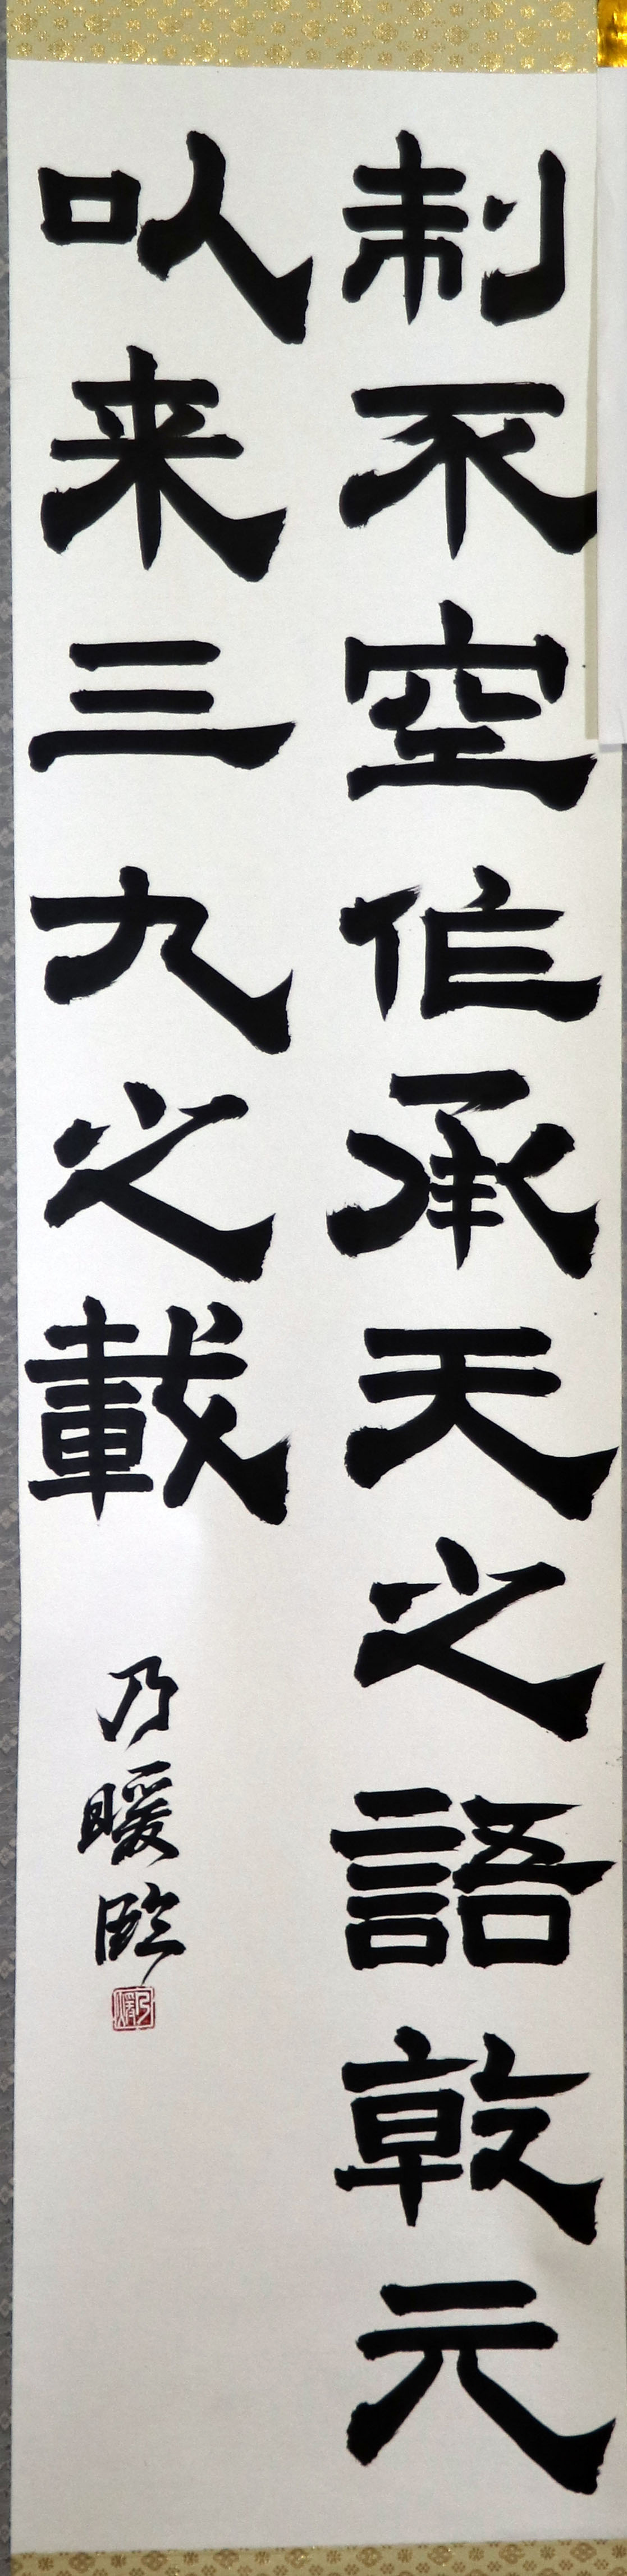 制不空作承天之語乾元
以来三九之載
乃暖臨